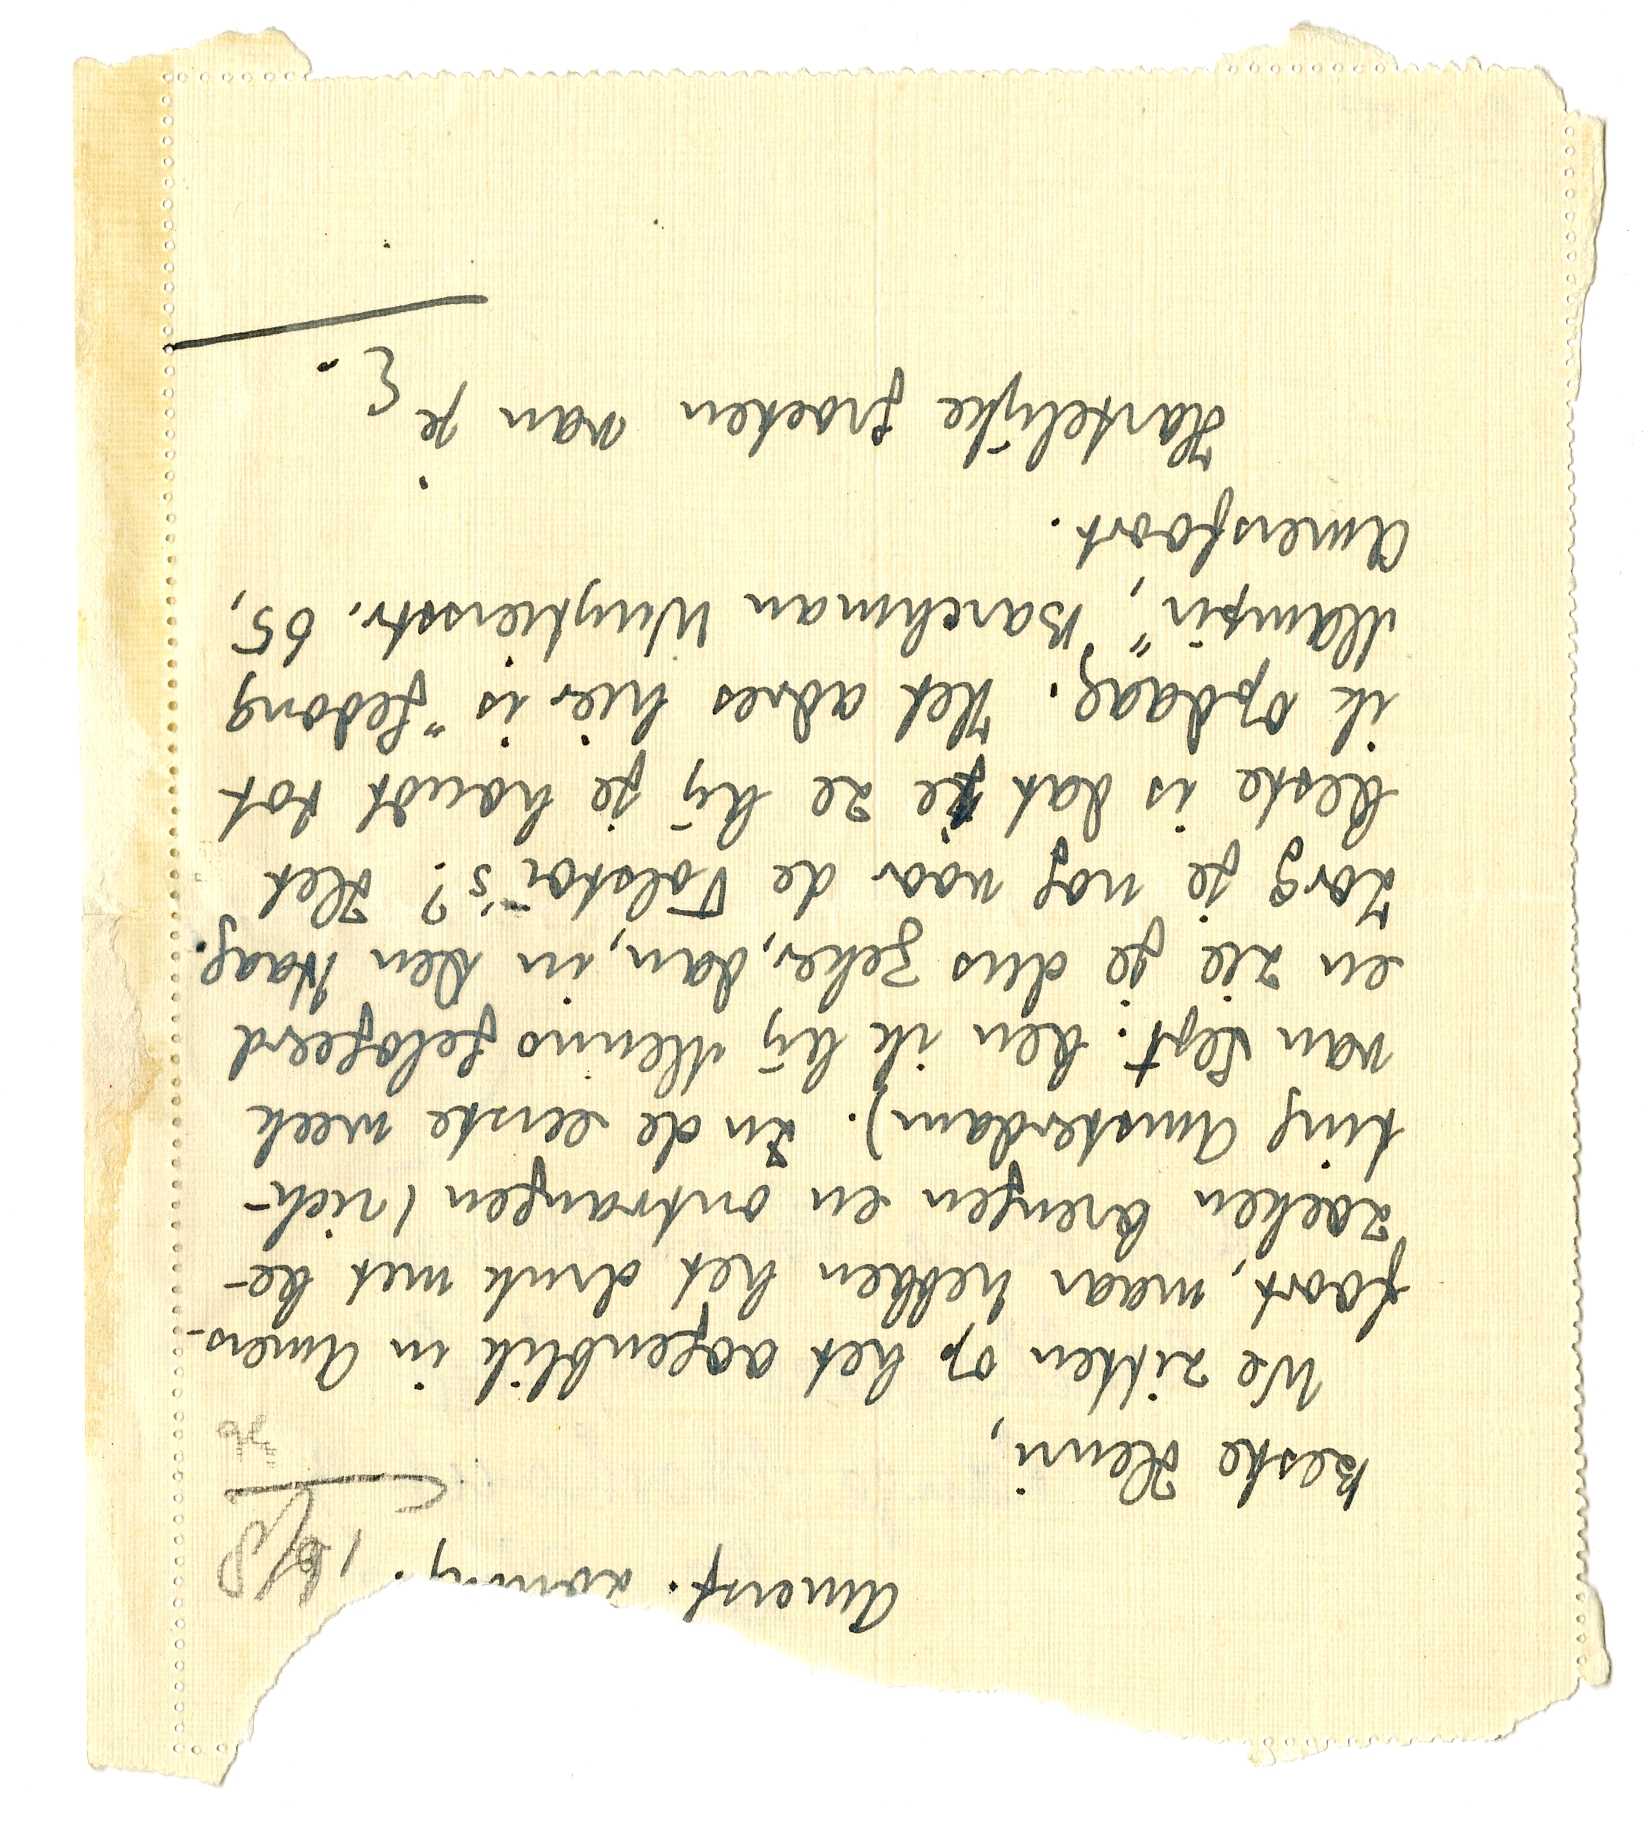 Amersf. zondag. 16/8
36
Beste Henri,
We zitten op het oogenblik in Amers-
foort, maar hebben het druk met be-
zoeken brengen en ontvangen (rich-
ting Amsterdam). In de eerste week
van Sept. ben ik bij Menno gelogeerd
en zie je dus zeker, dan, in Den Haag.
Zorg je nog voor de Tolstoï's? Het
beste is dat je ze bij je houdt tot
ik opdaag. Het adres hier is "Gedong
Mampir", Barchman Wuytiersstr. 65,
Amersfoort.
Hartelijke groeten van je
E.